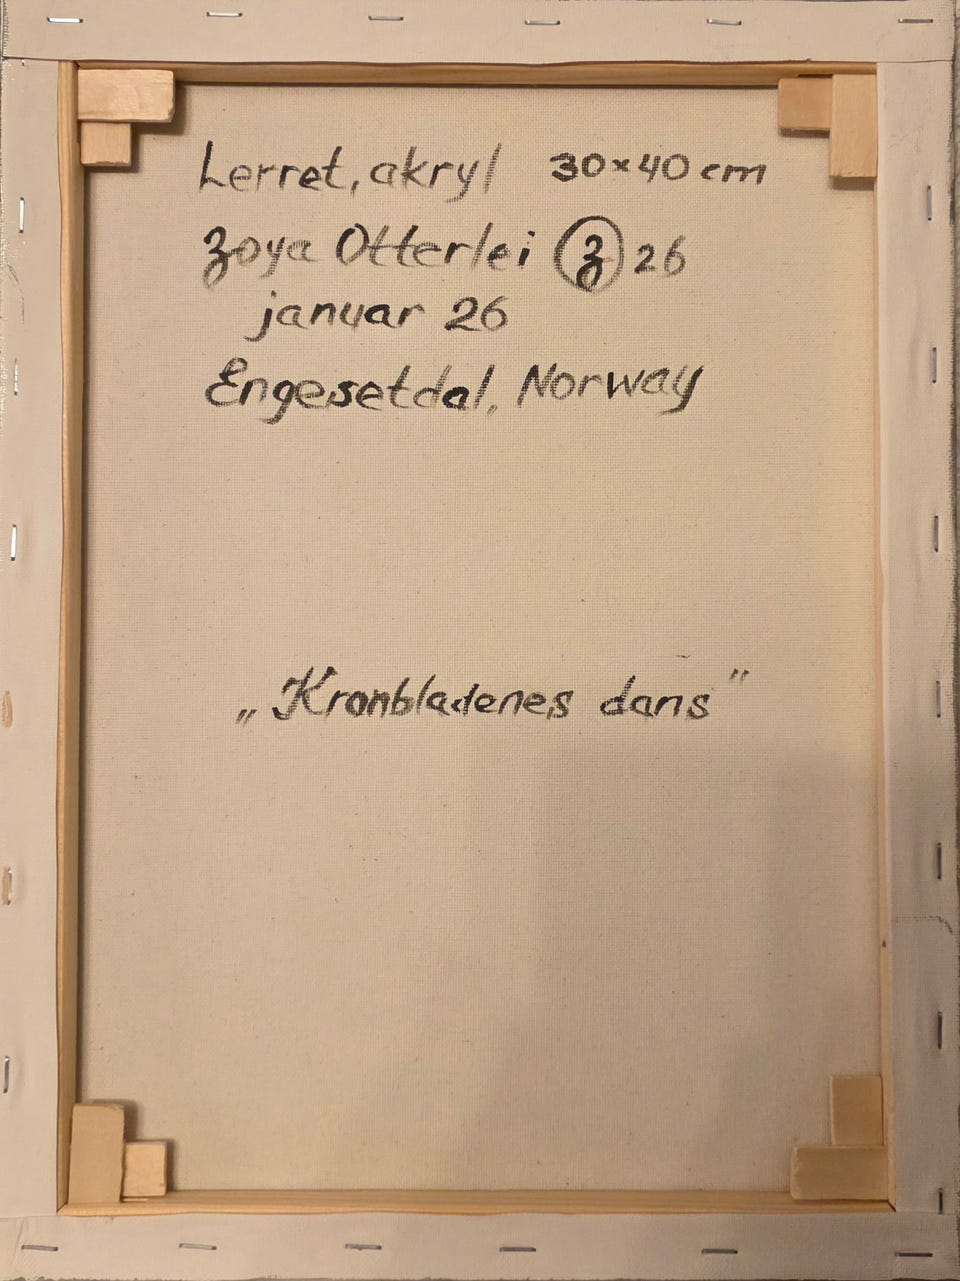 Lerret, akryl 30×40 cm
Zoya Otterlei Z 26
januar 26
Engesetdal, Norway
„Kronbladenes dans”